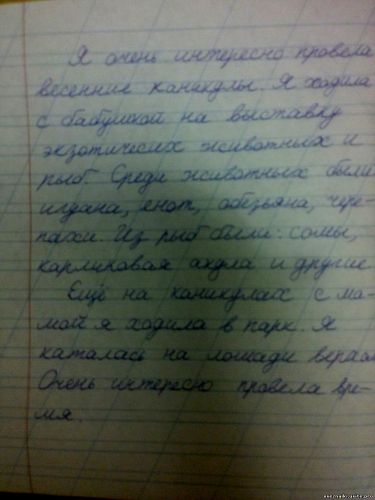 Я очень интересно провела
весенние каникулы. Я ходила
с бабушкой на выставку
экзотичесих животных и
рыб. Среди животных были
игуана, енот, обезьяна, чере-
пахи. Из рыб были: сомы,
карликовая акула и другие
Ещё на каникулах с ма-
мой я ходила в парк. Я
каталась на лошади верхом
Очень интересно провела вре-
мя.